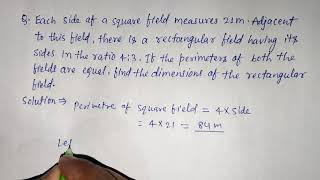 Q. Each side of a square field measures 21m. Adjacent
to this field, there is a rectangular field having its
sides in the ratio 4:3. If the perimeters of both the
fields are equal, find the dimensions of the rectangular
field.
Solution ⇒ Perimetre of square field = 4 × Side
= 4 × 21 = 84 m
Let